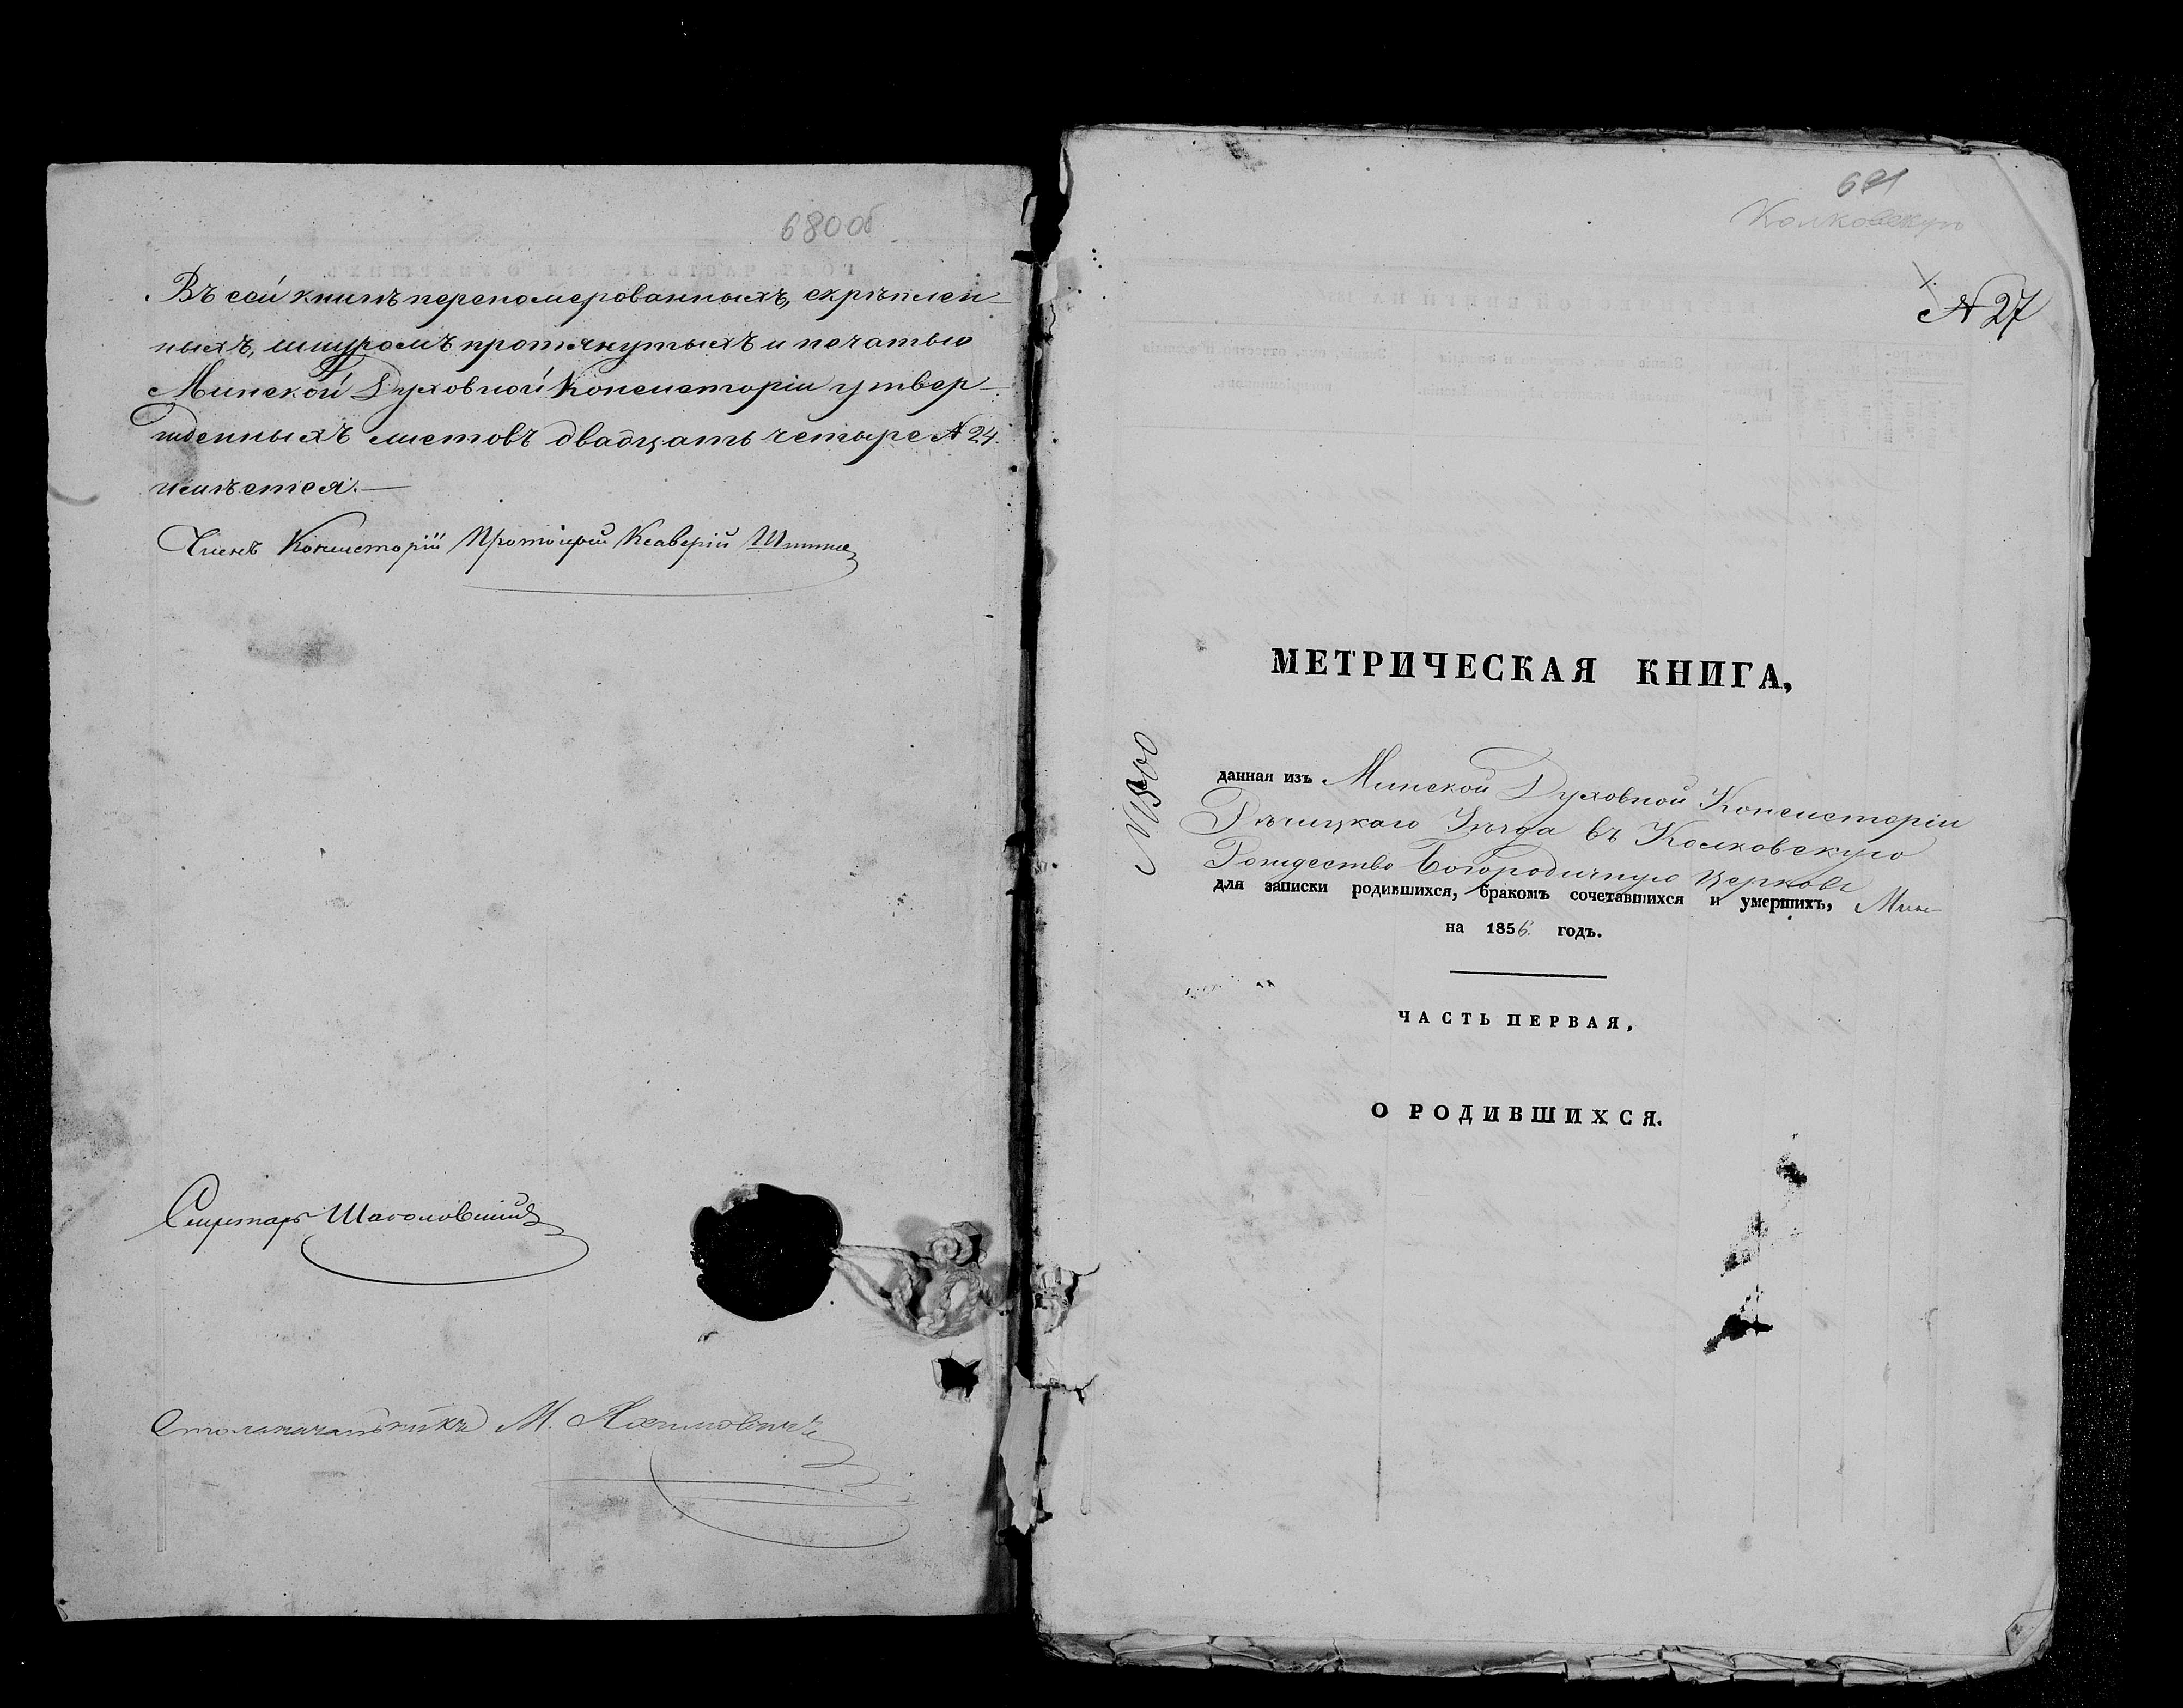 680об
Въ сей книгѣ перенумерованныхъ, скрѣплен-
ныхъ, шнуромъ протянутыхъ и печатью
Минской Духовной Консисторіи утвер-
жденныхъ листовъ двадцать четыре № 24.
имѣется.—
Членъ Консисторіи Протоіерей Ксаверій
Секретарь
Столоначальникъ М.
681
Колковскую
№ 27
МЕТРИЧЕСКАЯ КНИГА,
данная изъ Минской Духовной Консисторіи
Рѣчицкаго Уѣзда въ Колковскую
Рождество Богородичную Церковь
для записки родившихся, бракомъ сочетавшихся и умершихъ,
на 1856 годъ.
ЧАСТЬ ПЕРВАЯ,
О РОДИВШИХСЯ.